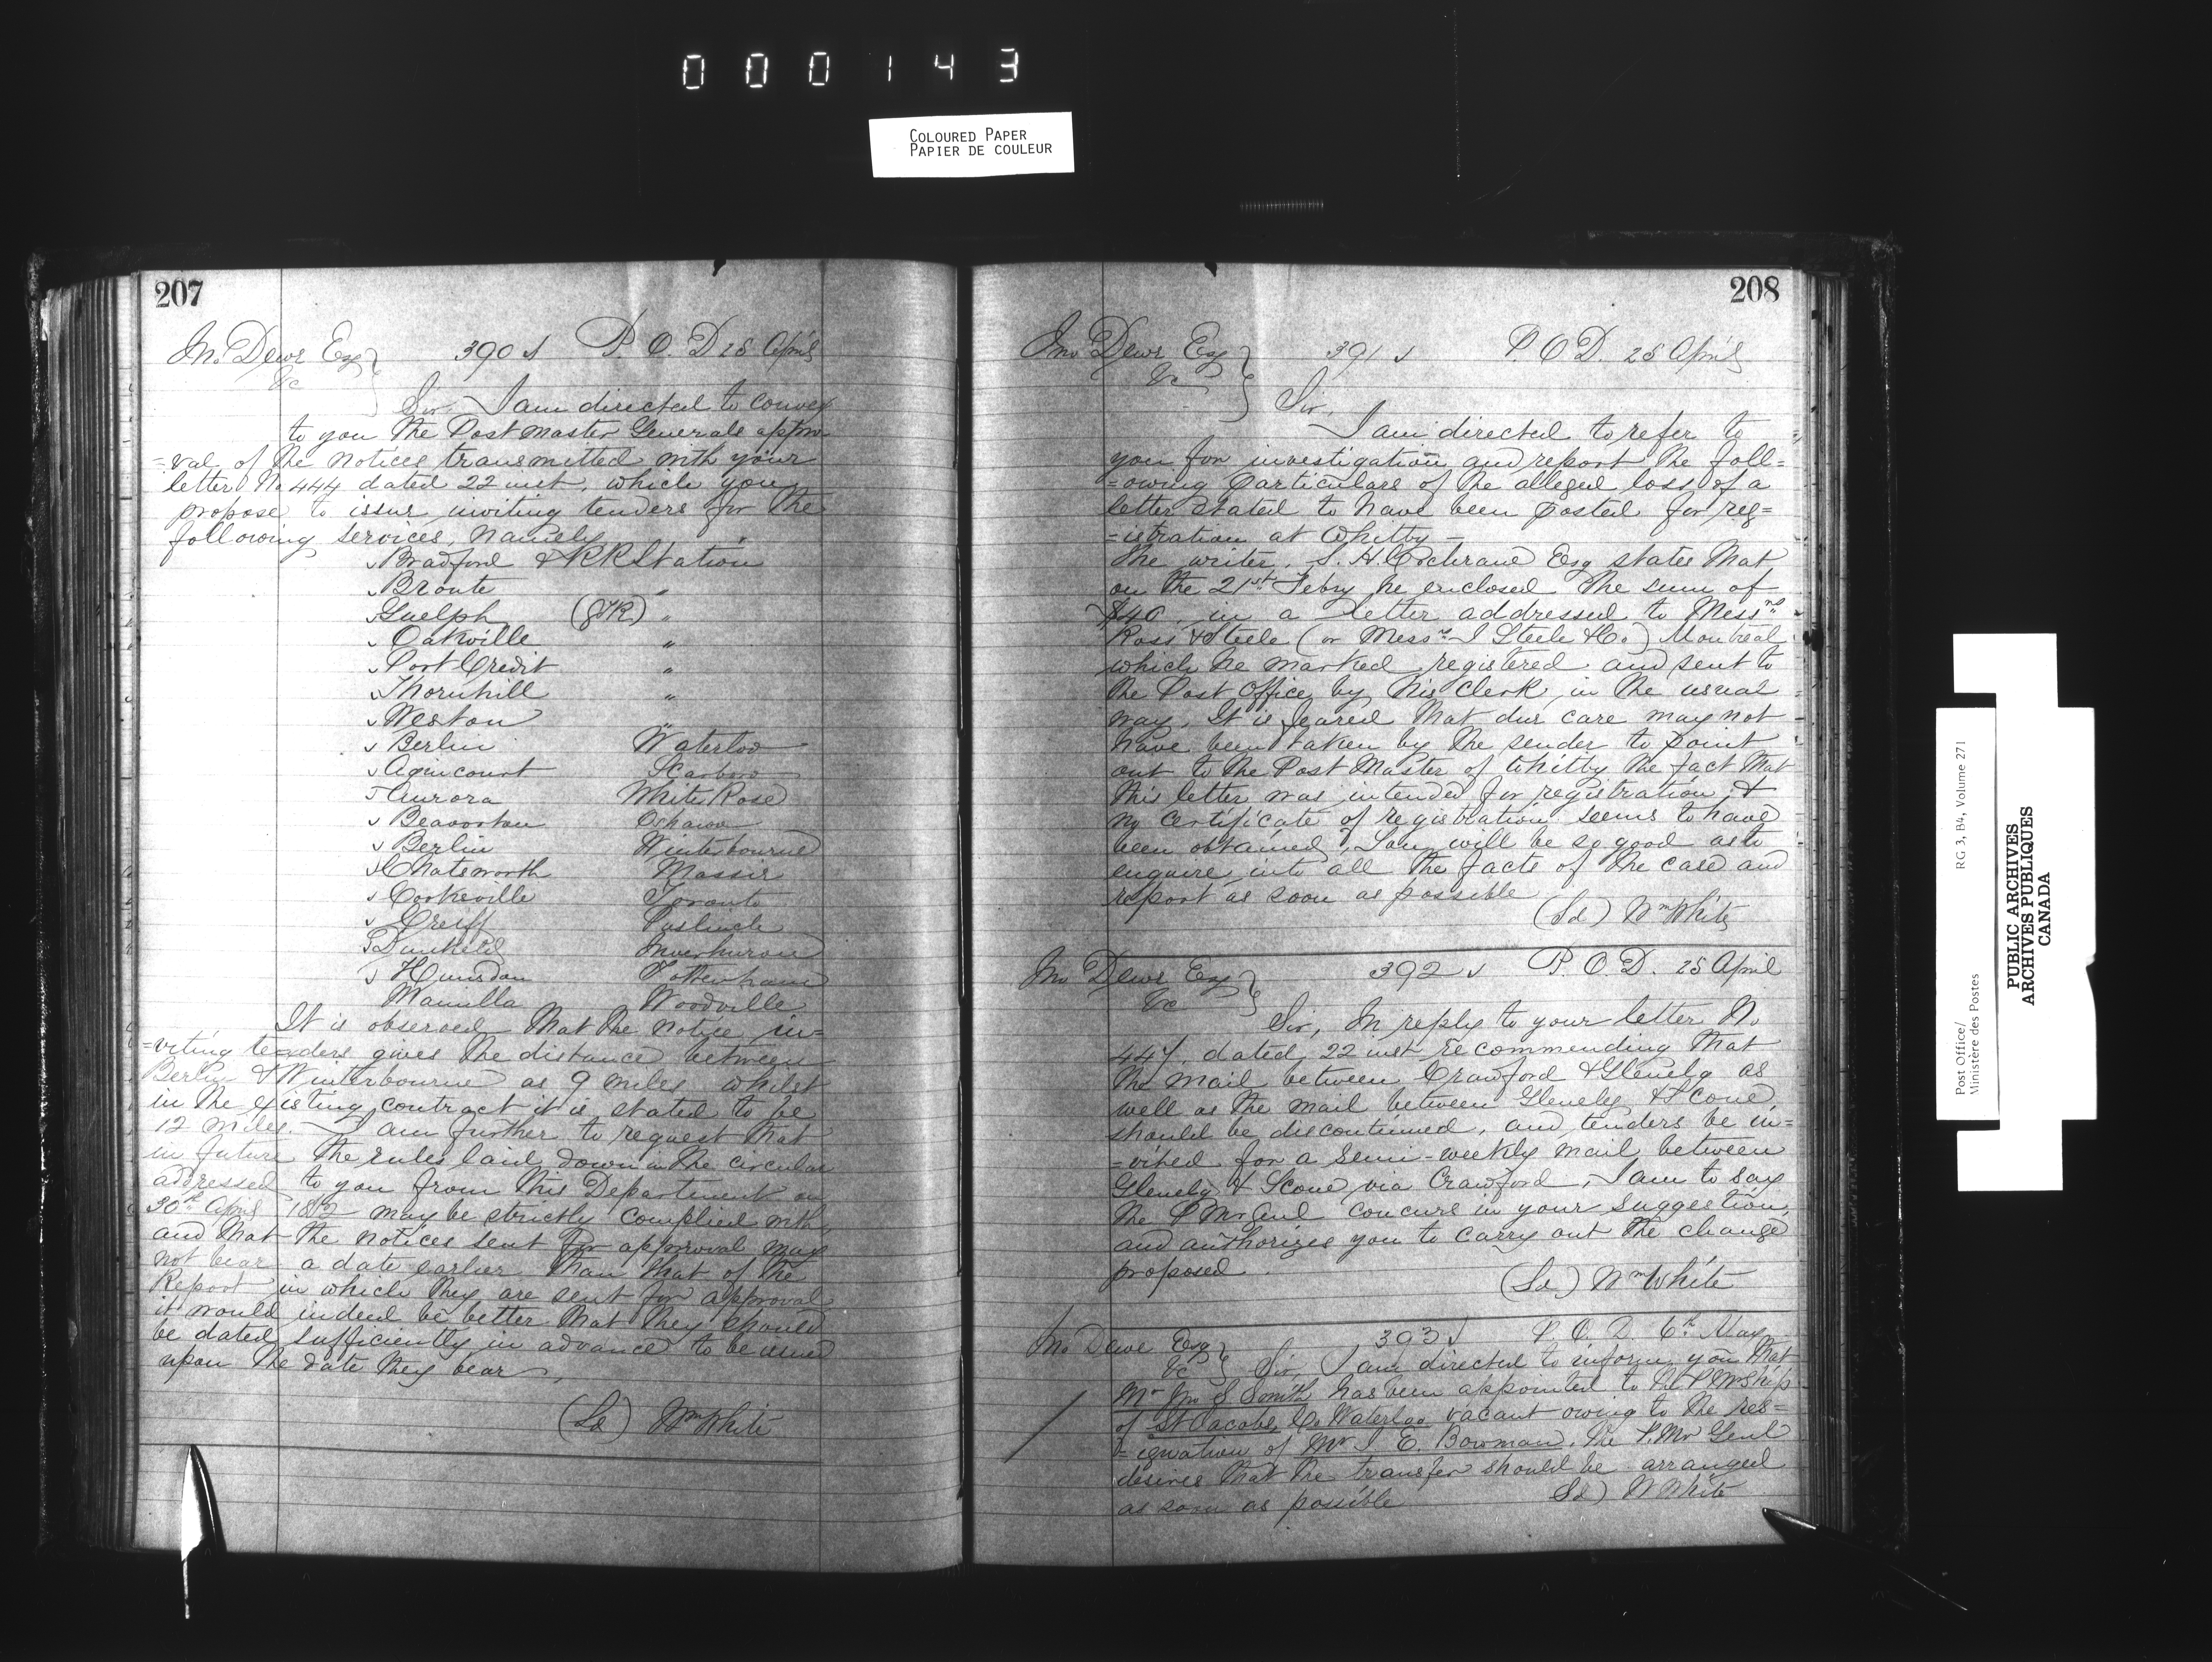 000143
COLOURED PAPER
PAPIER DE COULEUR
207
Jno. Dewe Esq 390 P. O. D 28 April
&c
Sir I am directed to convey
to you the Post Master Generals appro-
=val of the notices transmitted with your
letter No 444 dated 22 inst. which you
propose to issue inviting tenders for the
following services, namely
Bradford & RR Station
Bronte "
Guelph (GTR) "
Oakville "
Port Credit "
Thornhill "
Weston "
Berlin Waterloo
Agincourt Scarboro
Aurora White Rose
Beaverton Oshawa
Berlin Winterbourne
Chatsworth Massie
Cooksville Toronto
Crieff Puslinch
Dunkeld Inverhuron
Hunsdon Tottenham
Manilla Woodville
It is observed that the notice in=
=viting tenders gives the distance between
Berlin & Winterbourne as 9 miles whilst
in the existing contract it is stated to be
12 miles. I am further to request that
in future the rules laid down in the circular
addressed to you from this Department on
30th April may be strictly complied with,
and that the notices sent for approval may
not bear a date earlier than that of the
Report in which they are sent for approval
it would indeed be better that they should
be dated sufficiently in advance to be issued
upon the date they bear.
(Sd) Wm White
208
Jno Dewe Esq 391 P. O D. 28 April
&c
Sir,
I am directed to refer to
you for investigation and report the foll=
=owing particulars of the alleged loss of a
letter stated to have been posted for reg=
=istration at Whitby –
The writer, S. H. Cochrane Esq states that
on the 21st Febry he enclosed the sum of
$40. in a letter addressed to Messrs
Ross & Steele (or Messrs J Steele & Co) Montreal
which he marked registered and sent to
the Post Office by his clerk, in the usual
way. It is feared that due care may not
have been taken by the sender to point
out to the Post Master of Whitby the fact that
this letter was intended for registration, &
no certificate of registration seems to have
been obtained, You will be so good as to
enquire into all the facts of the case and
report as soon as possible
(Sd) Wm White
Jno Dewe Esq 392 P. O. D. 28 April
&c
Sir, In reply to your letter No
447. dated 22 inst recommending that
the mail between Crawford & Glenelg as
well as the mail between Glenelg & Scone
should be discontinued, and tenders be in=
=vited for a semi-weekly mail between
Glenelg & Scone via Crawford, I am to say
the P Mr Genl concurs in your suggestion,
and authorizes you to carry out the change
proposed.
(Sd) Wm White
Jno Dewe Esq 393 P. O. D. 6th May
&c Sir, I am directed to inform you that
Mr Jno S Smith has been appointed to the P Mr Ship
of St Jacobs, Co Waterloo vacant owing to the res=
=ignation of Mr I. E. Bowman. The P. Mr Genl
desires that the transfer should be arranged
as soon as possible Sd) W White
Post Office/ RG 3, B4, Volume 271
Ministère des Postes
PUBLIC ARCHIVES
ARCHIVES PUBLIQUES
CANADA